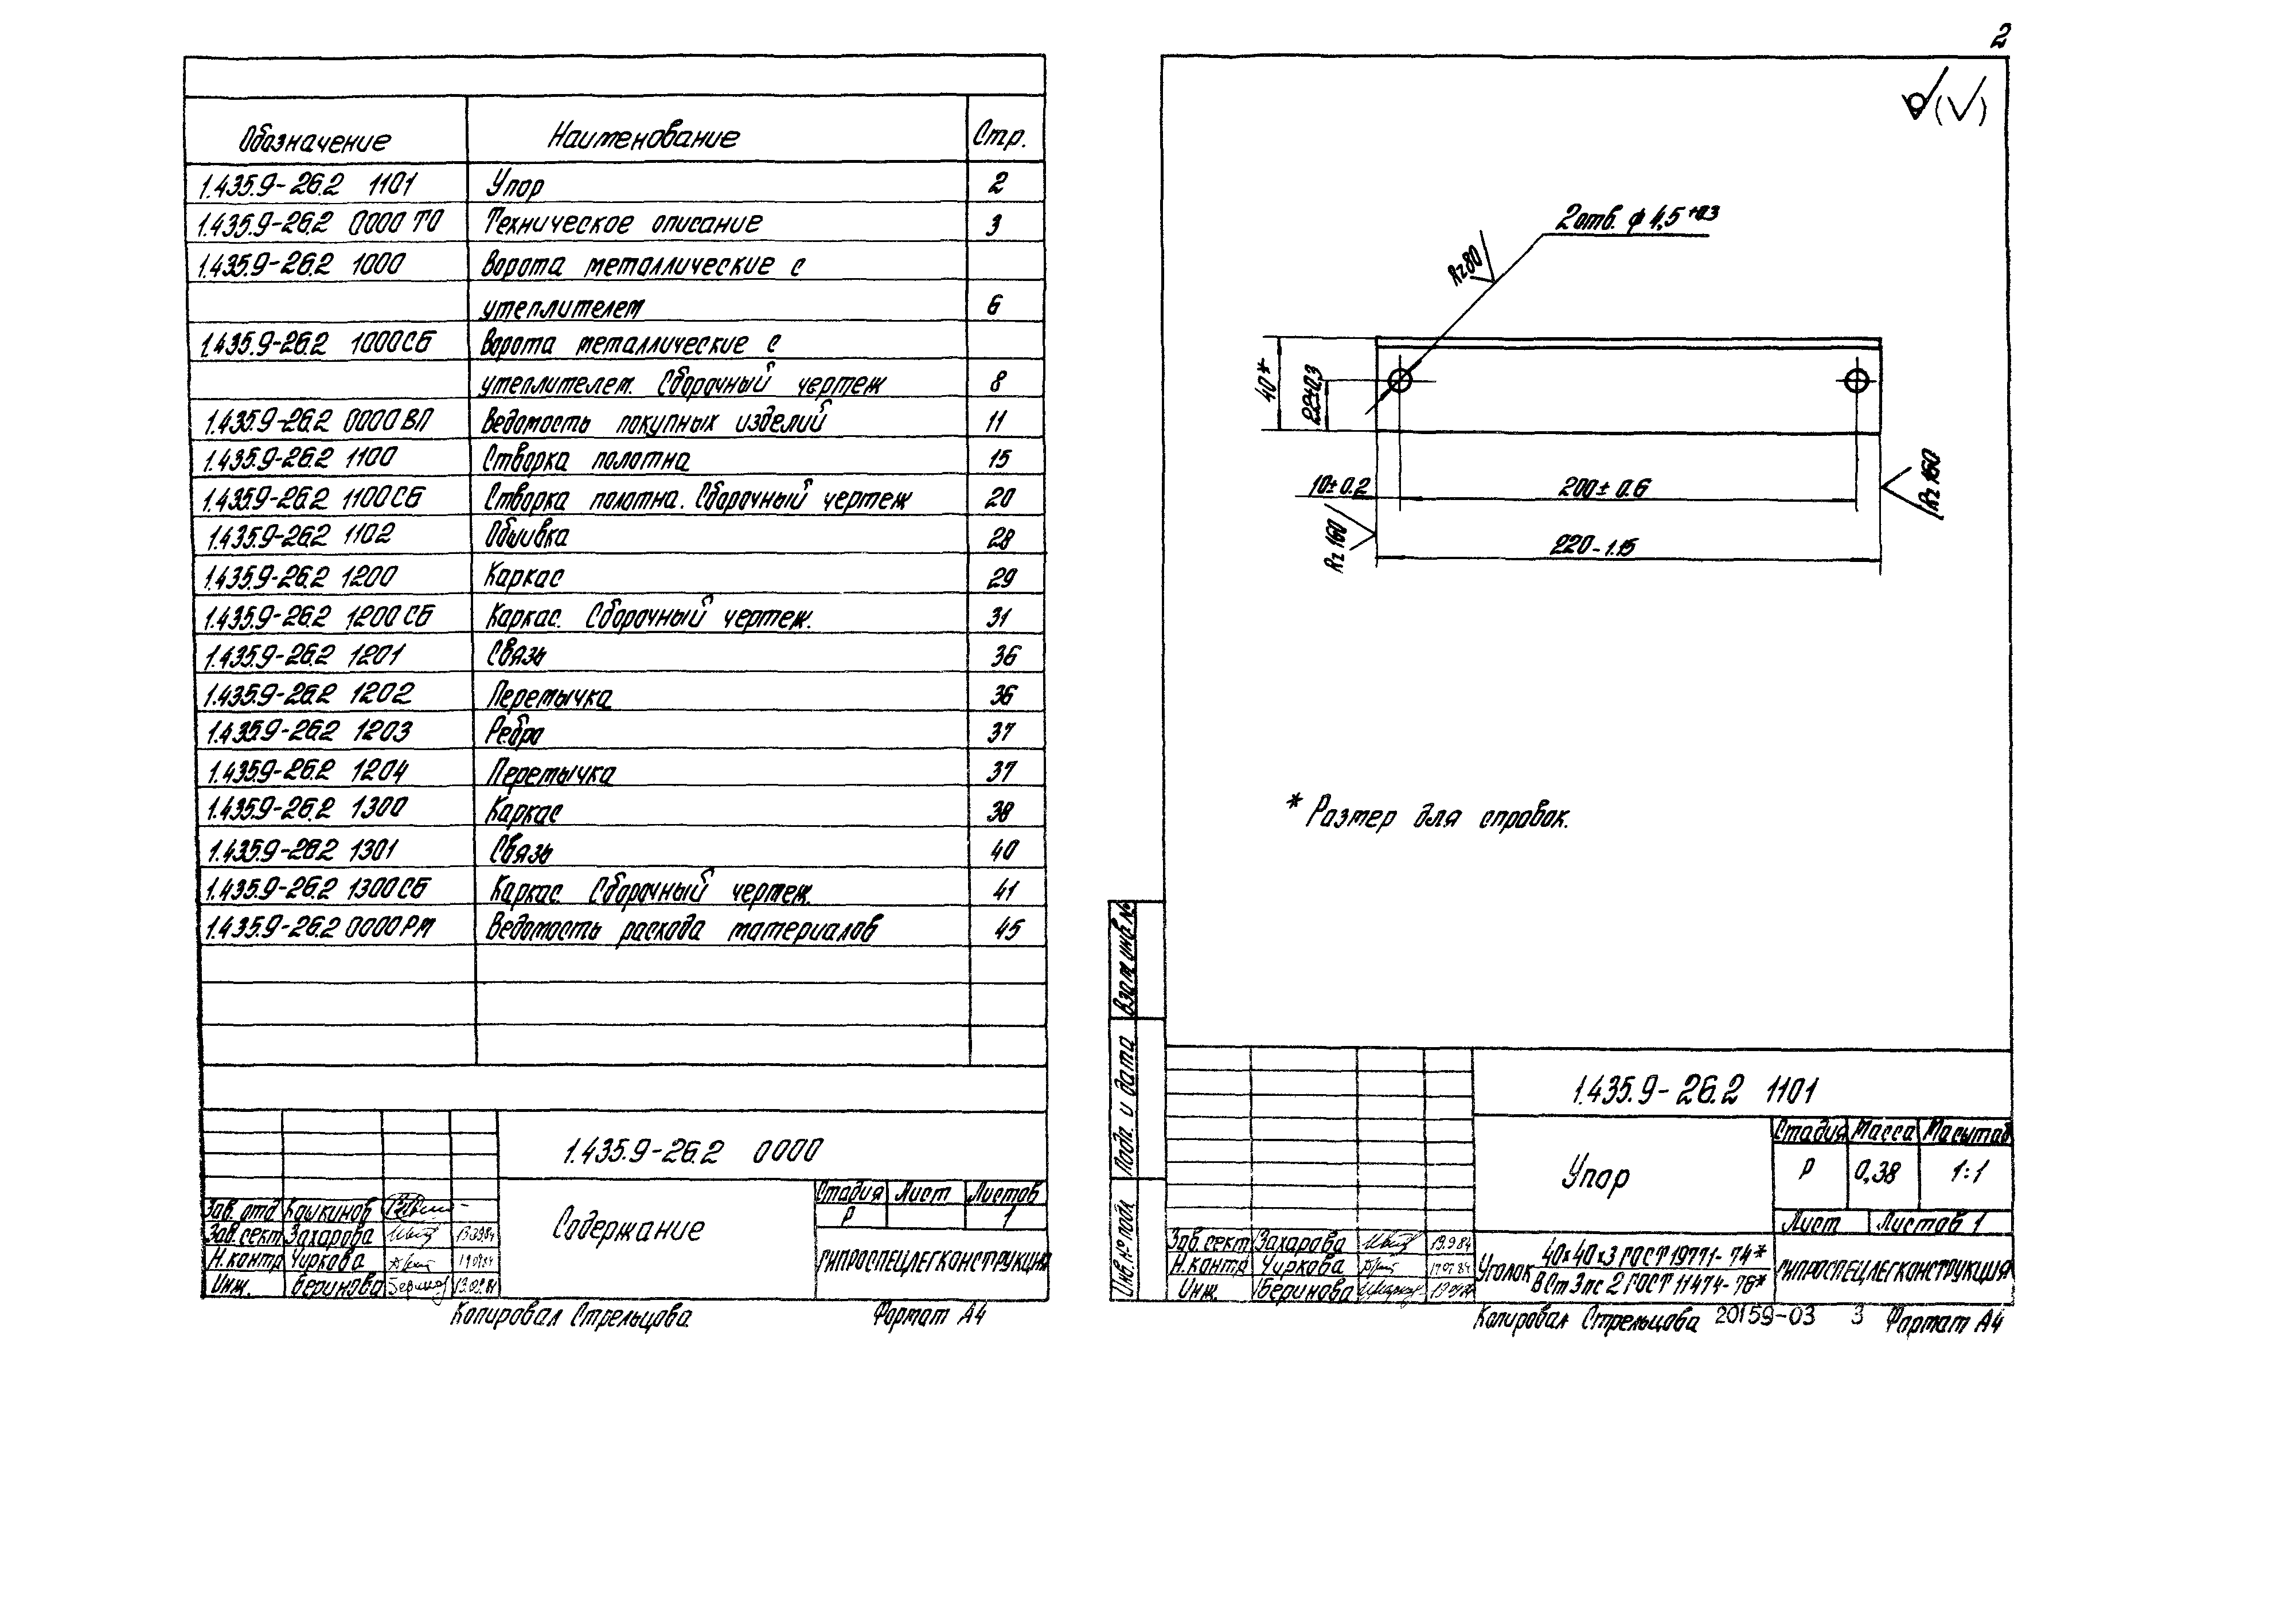 Обозначение Наименование Стр.
1.435.9-26.2 1101 Упор 2
1.435.9-26.2 0000 ТО Техническое описание 3
1.435.9-26.2 1000 Ворота металлические с
утеплителем 6
1.435.9-26.2 1000СБ Ворота металлические с
утеплителем. Сборочный чертеж 8
1.435.9-26.2 0000 ВП Ведомость покупных изделий 11
1.435.9-26.2 1100 Створка полотна 15
1.435.9-26.2 1100 СБ Створка полотна. Сборочный чертеж 20
1.435.9-26.2 1102 Обшивка 28
1.435.9-26.2 1200 Каркас 29
1.435.9-26.2 1200 СБ Каркас. Сборочный чертеж. 31
1.435.9-26.2 1201 Связь 36
1.435.9-26.2 1202 Перемычка 36
1.435.9-26.2 1203 Ребро 37
1.435.9-26.2 1204 Перемычка 37
1.435.9-26.2 1300 Каркас 38
1.435.9-26.2 1301 Связь 40
1.435.9-26.2 1300 СБ Каркас. Сборочный чертеж. 41
1.435.9-26.2 0000 РМ Ведомость расхода материалов 45
1.435.9-26.2 0000
Содержание
Стадия Лист Листов
Р 1
ГИПРОСПЕЦЛЕГКОНСТРУКЦИЯ
Зав. отд Кашкинов
Зав. сект Захарова
Н.контр Чиркова
Инж. Беринова
Копировал Стрельцова Формат А4
2
2 отв. ф 4,5 +0.3
Rz80
40*
22±0.3
10±0.2
200±0.6
220-1.15
Rz 160
Rz 160
* Размер для справок.
Взам. инв. №
Подп. и дата
Инв. № подл.
1.435.9-26.2 1101
Упор
Стадия Масса Масштаб
Р 0,38 1:1
Лист Листов 1
Зав. сект Захарова 19.9.84
Н.контр Чиркова
Инж. Беринова
Уголок 40х40х3 ГОСТ 19771-74*
ВСт3пс2 ГОСТ 11474-76*
ГИПРОСПЕЦЛЕГКОНСТРУКЦИЯ
Копировал Стрельцова 20159-03 3 Формат А4